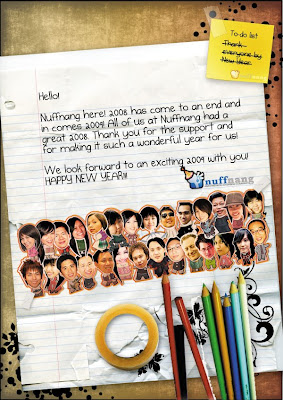 To-do list
Thank
everyone by
New Year.
Hello!
Nuffnang here! 2008 has come to an end and
in comes 2009! All of us at Nuffnang had a
great 2008. Thank you for the support and
for making it such a wonderful year for us!
We look forward to an exciting 2009 with you!
HAPPY NEW YEAR!!!
nuffnang